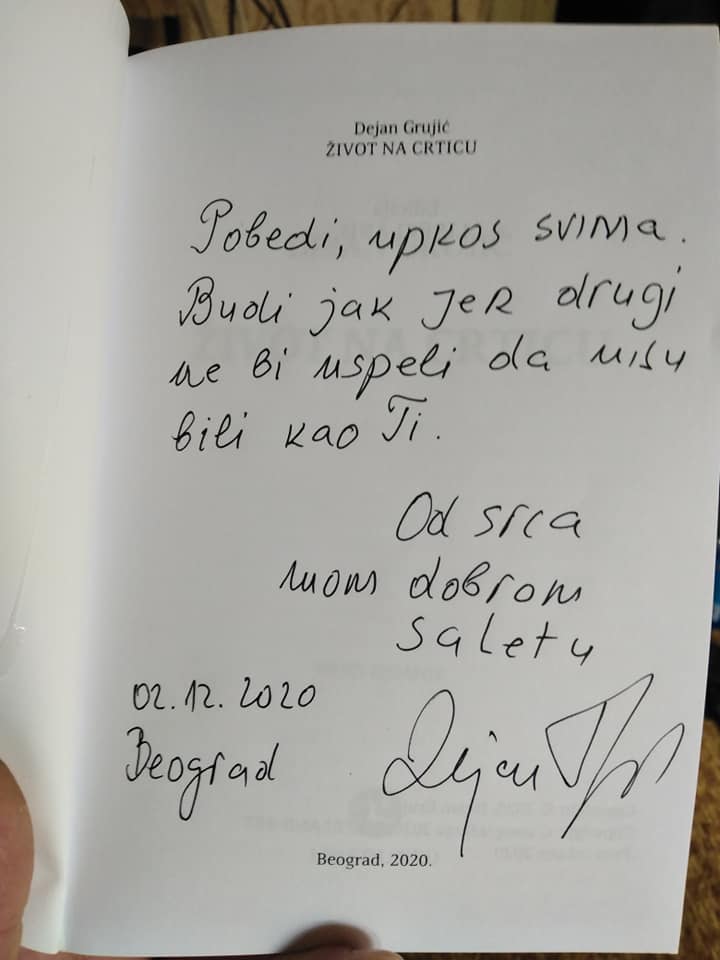 Dejan Grujić
ŽIVOT NA CRTICU
Pobedi, upkos svima.
Budi jak jer drugi
ne bi uspeli da nisu
bili kao Ti.
Od srca
mom dobrom
Saletu
02.12.2020
Beograd
Dejan
Beograd, 2020.